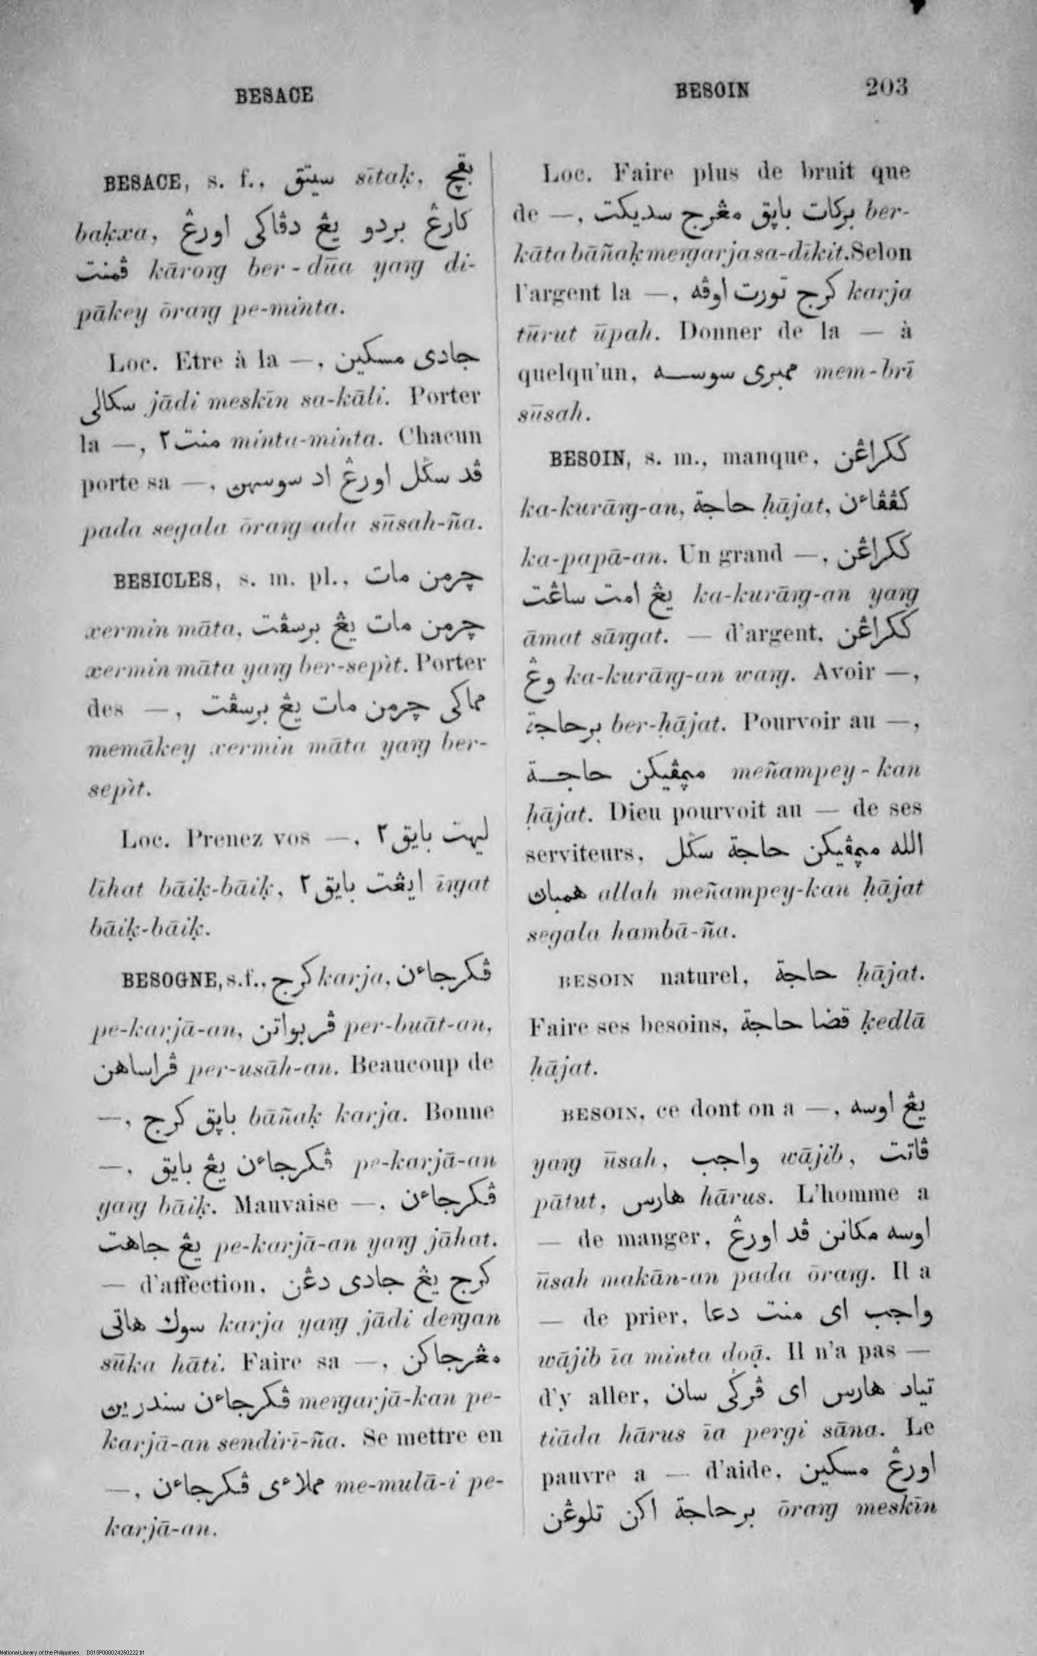 BESACE
BESOIN 203
BESACE, s. f., سيتق sītaḳ, بقچ
baḳxa, كارڠ بردو يڠ دڤاكى اورڠ
ڤمنت kārorg ber-dūa yarg di-
pākey ōrarg pe-minta.
Loc. Etre à la —, جادى مسكين
سكالى jādi meskīn sa-kāli. Porter
la —, منت٢ minta-minta. Chacun
porte sa —, ڤد سݢل اورڠ اد سوسهن
pada segala ōrarg ada sūsah-ña.
BESICLES, s. m. pl., چرمن مات
xermin māta, چرمن مات يڠ برسڤت
xermin māta yarg ber-sepìt. Porter
des —, مماكى چرمن مات يڠ برسڤت
memākey xermin māta yarg ber-
sepìt.
Loc. Prenez vos —, ليهت بايق٢
līhat bāiḳ-bāiḳ, ايڠت بايق٢ īrgat
bāiḳ-bāiḳ.
BESOGNE, s. f., كرج karja, ڤكرجاءن
pe-karjā-an, ڤربواتن per-buāt-an,
ڤراساهن per-usāh-an. Beaucoup de
—, باڽق كرج bāñaḳ karja. Bonne
—, ڤكرجاءن يڠ بايق pe-karjā-an
yarg bāiḳ. Mauvaise —, ڤكرجاءن
يڠ جاهت pe-karjā-an yarg jāhat.
— d'affection, كرج يڠ جادى دڠن
سوك هاتى karja yarg jādi dergan
sūka hāti. Faire sa —, مڠرجاكن
ڤكرجاءن سندرين mergarjā-kan pe-
karjā-an sendirī-ña. Se mettre en
—, مملاءى ڤكرجاءن me-mulā-i pe-
karjā-an.
Loc. Faire plus de bruit que
de —, بركات باڽق مڠرج سديكت ber-
kāta bāñaḳ mergarja sa-dīkit. Selon
l'argent la —, كرج تورت اوڤه karja
tūrut ūpah. Donner de la — à
quelqu'un, ممبرى سوسه mem-brī
sūsah.
BESOIN, s. m., manque, ككراڠن
ka-kurārg-an, حاجة ḥājat, كڤڤاءن
ka-papā-an. Un grand —, ككراڠن
يڠ امت ساڠت ka-kurārg-an yarg
āmat sārgat. — d'argent, ككراڠن
وڠ ka-kurārg-an warg. Avoir —,
برحاجة ber-ḥājat. Pourvoir au —,
مڽمڤيكن حاجة meñampey-kan
ḥājat. Dieu pourvoit au — de ses
serviteurs, الله مڽمڤيكن حاجة سݢل
همباڽ allah meñampey-kan ḥājat
segala hambā-ña.
BESOIN naturel, حاجة ḥājat.
Faire ses besoins, قضا حاجة ḳedlā
ḥājat.
BESOIN, ce dont on a —, يڠ اوسه
yarg ūsah, واجب wājib, ڤاتت
pātut, هارس hārus. L'homme a
— de manger, اوسه مكانن ڤد اورڠ
ūsah makān-an pada ōrarg. Il a
— de prier, واجب اى منت دعا
wājib īa minta doạ̄. Il n'a pas —
d'y aller, تياد هارس اى ڤرݢى سان
tiāda hārus īa pergi sāna. Le
pauvre a — d'aide, اورڠ مسكين
برحاجة اكن تلوڠن ōrarg meskīn
National Library of the Philippines